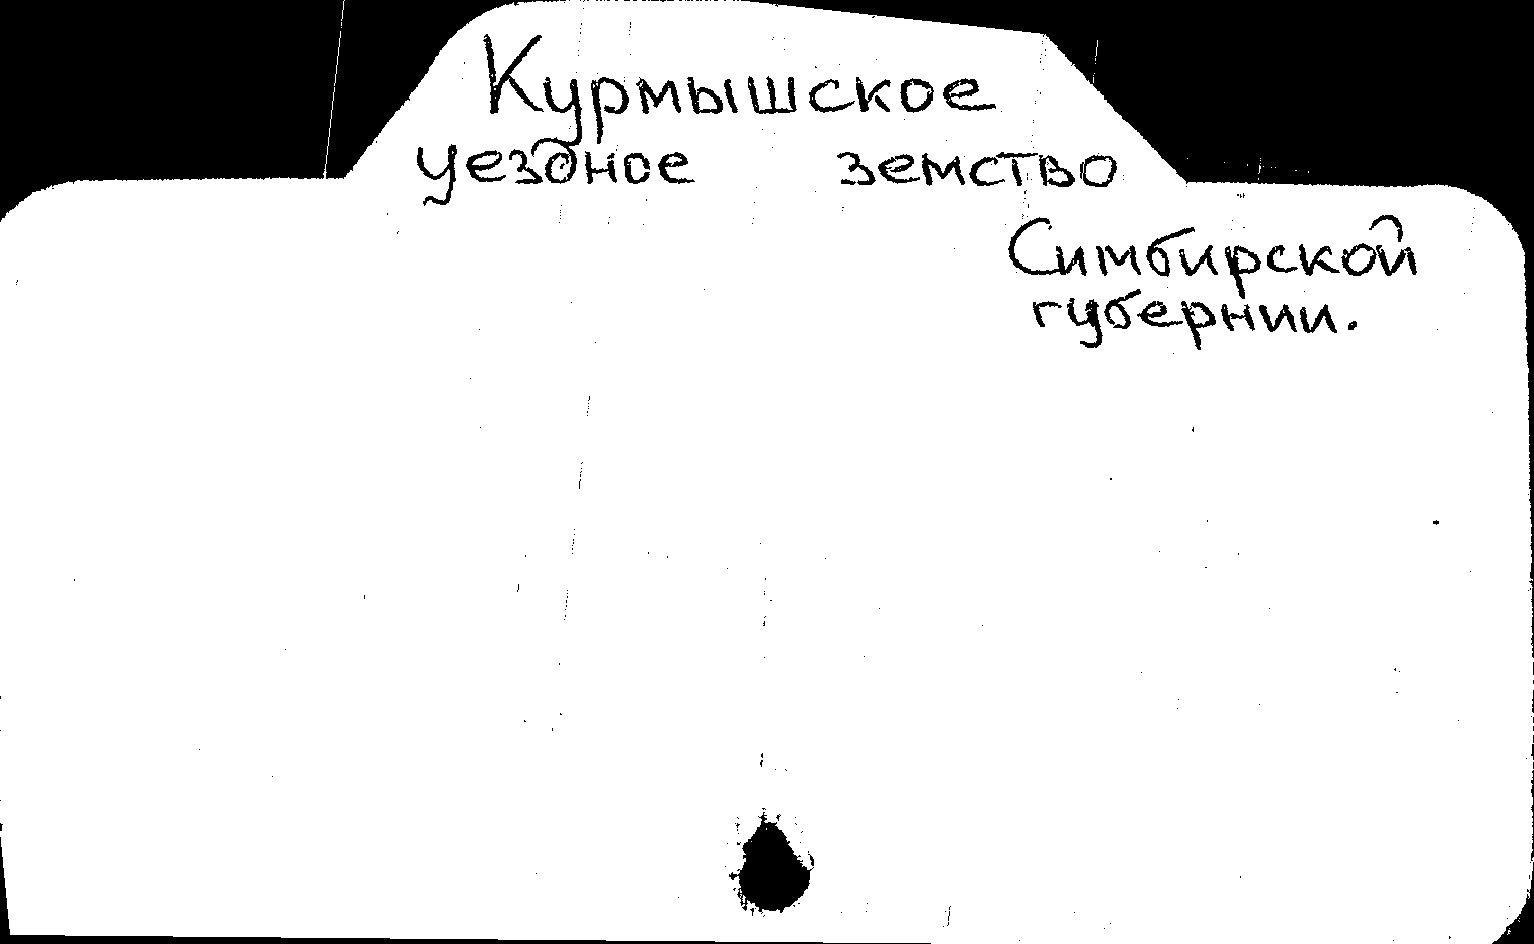 Курмышское
уездное земство
Симбирской
губернии.